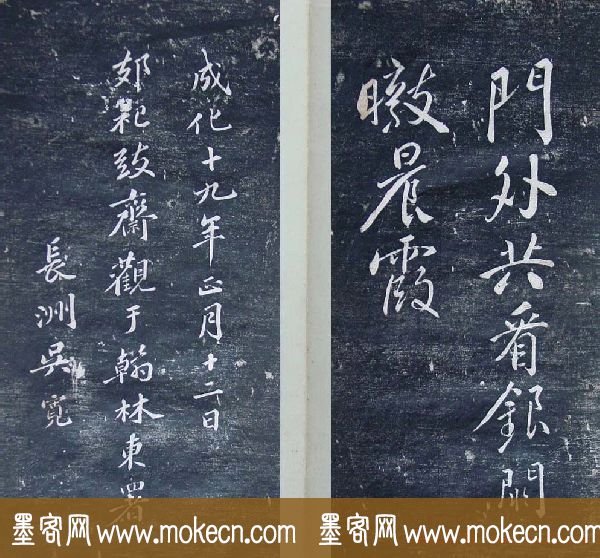 門外共看銀闕
暾晨霞
成化十九年正月十二日
郊祀致齋觀于翰林東署
長洲吳寬
墨客网 www.mokecn.com 墨客网 www.mokecn.com